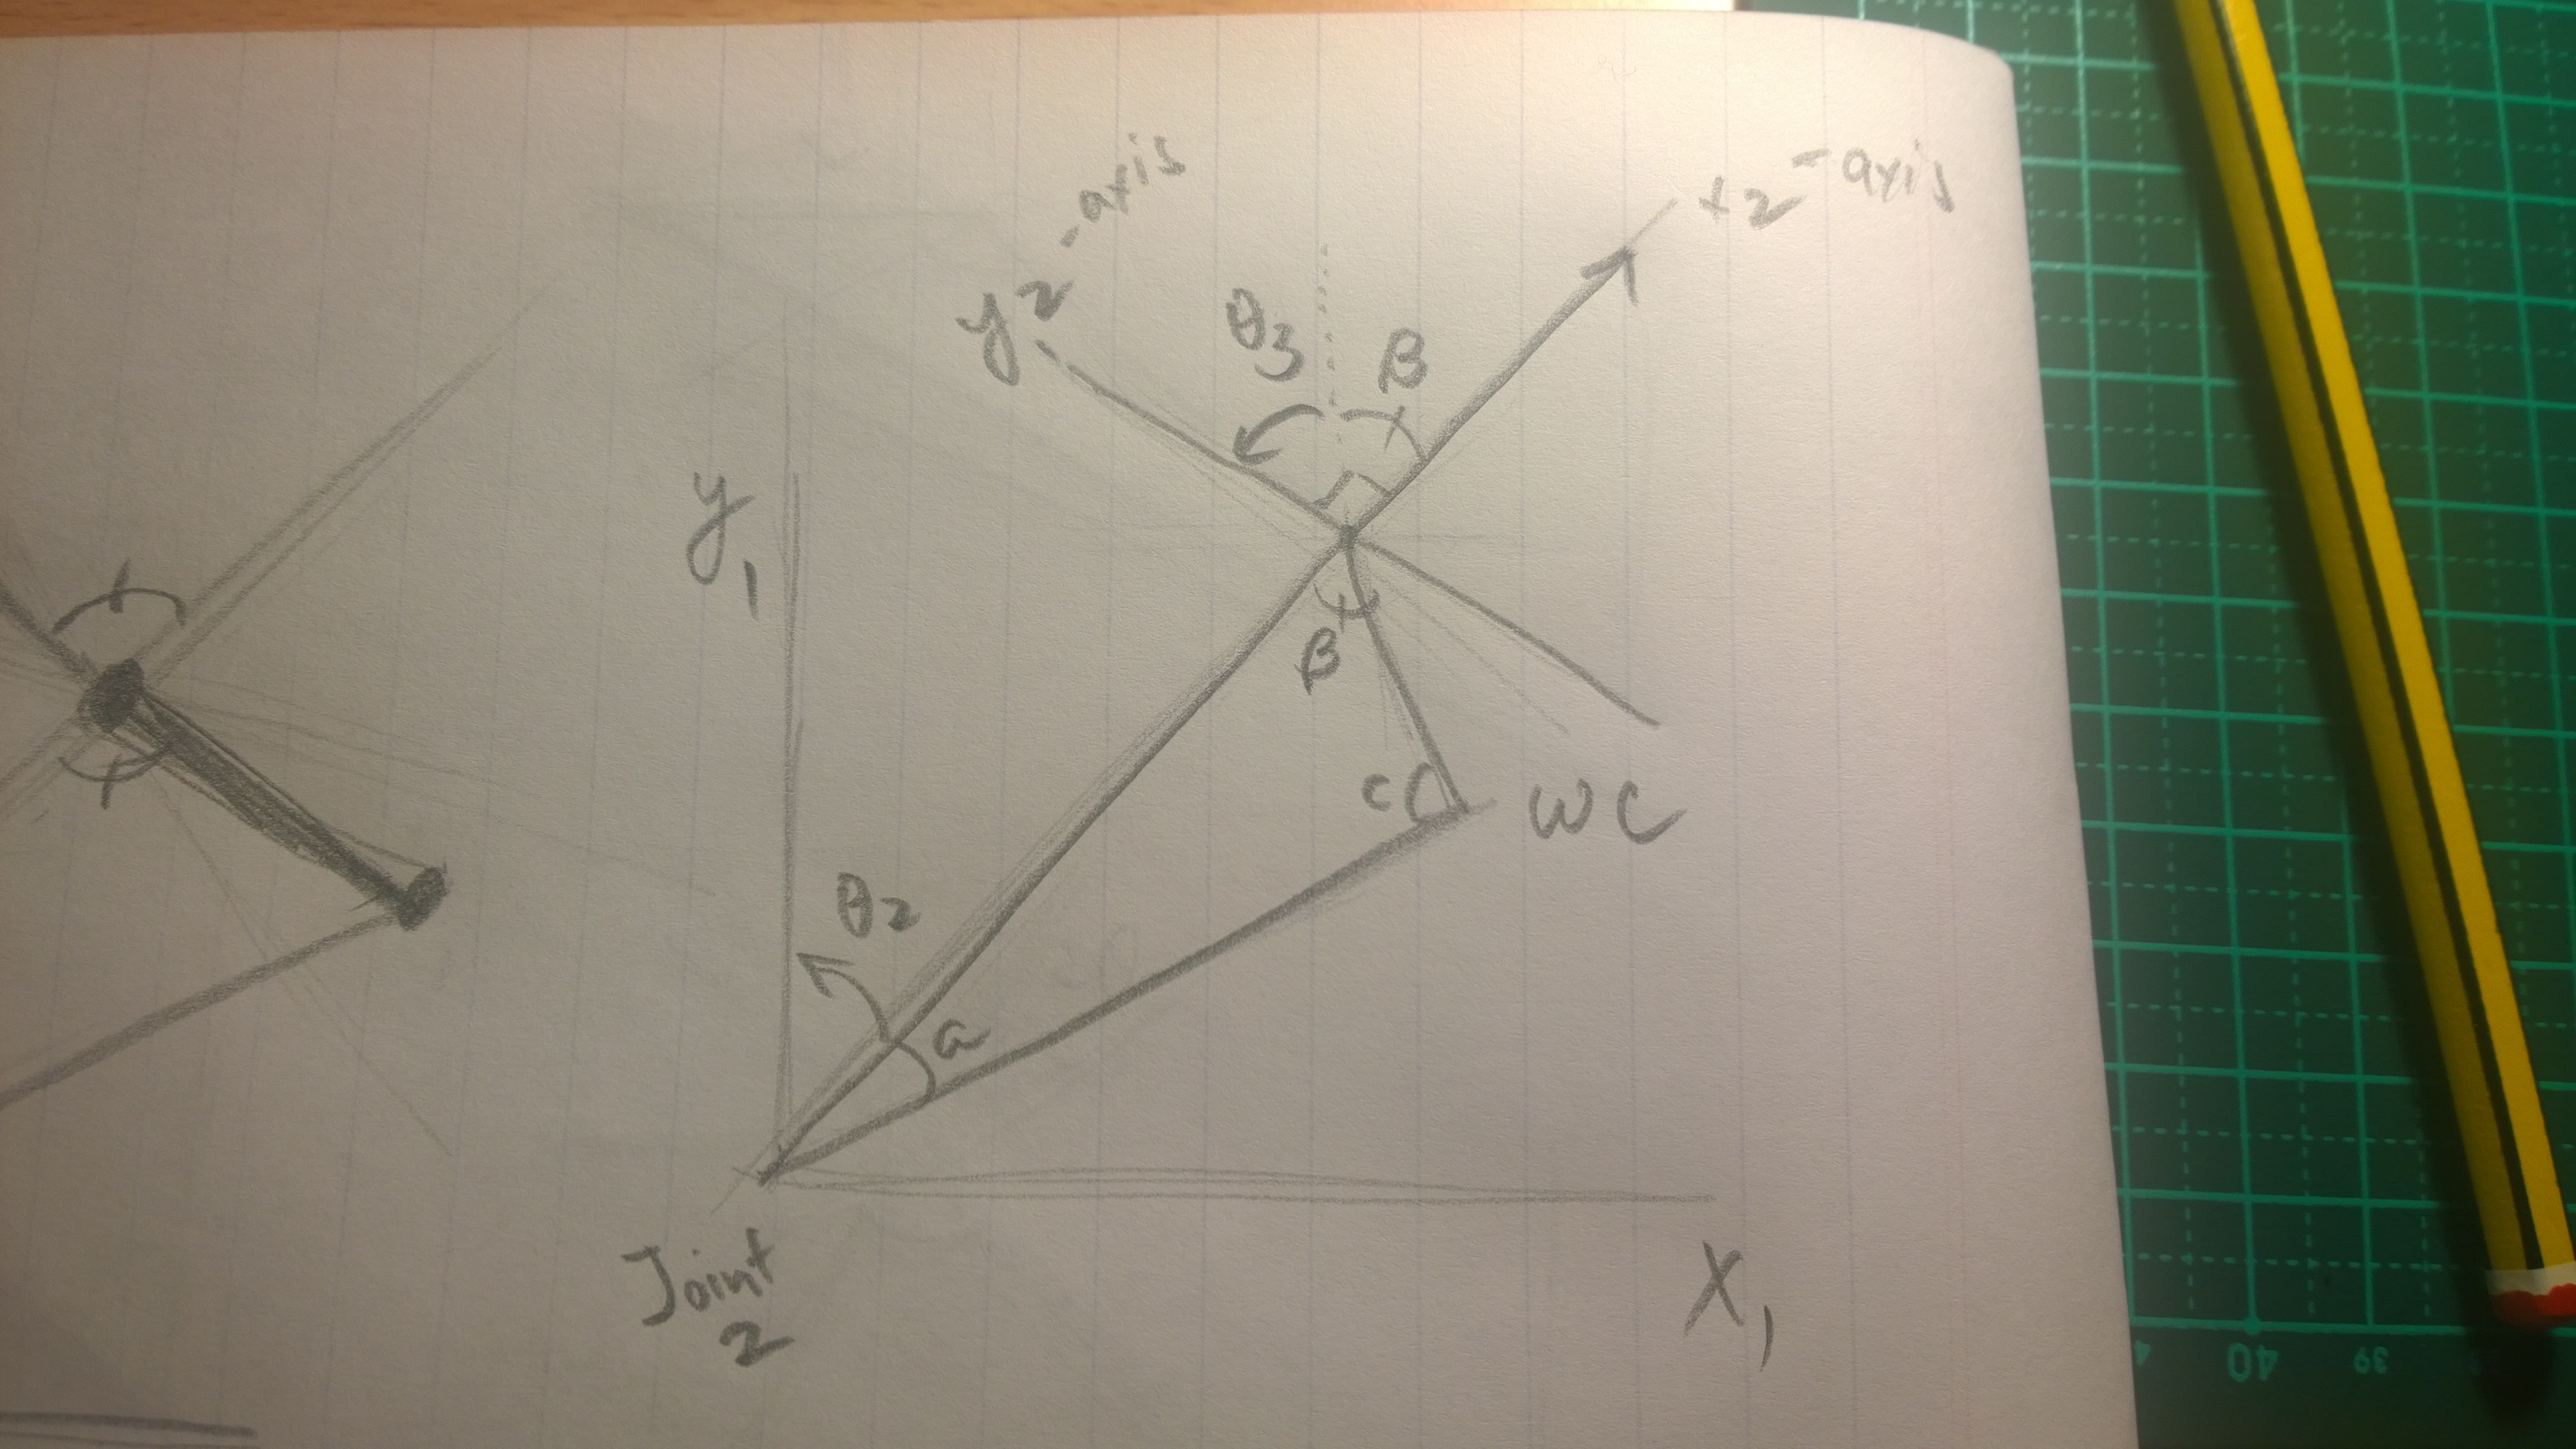 y2-axis
x2-axis
θ3
β
y1
β
c
WC
θ2
a
Joint
2
X1
40
39